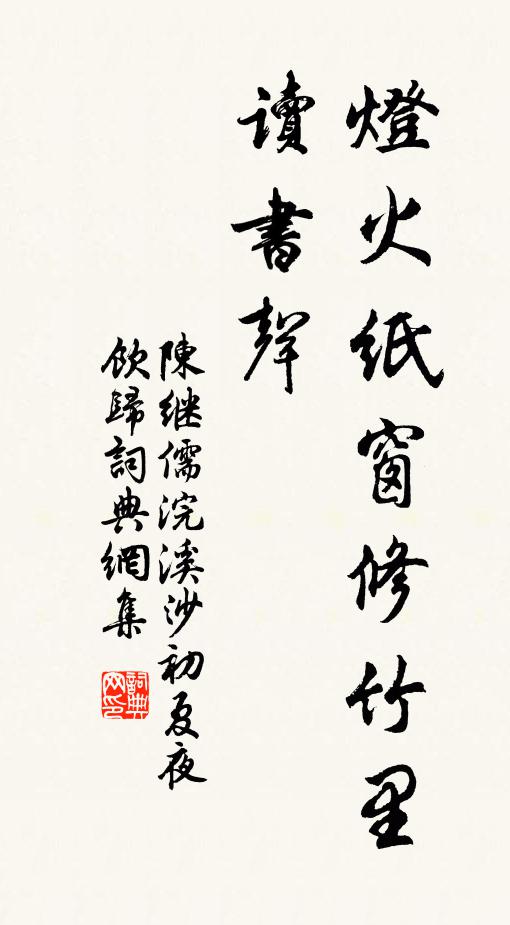 燈火紙窗修竹里
讀書聲
陳継儒浣溪沙初夏夜
飲歸詞典網集
詞典网印